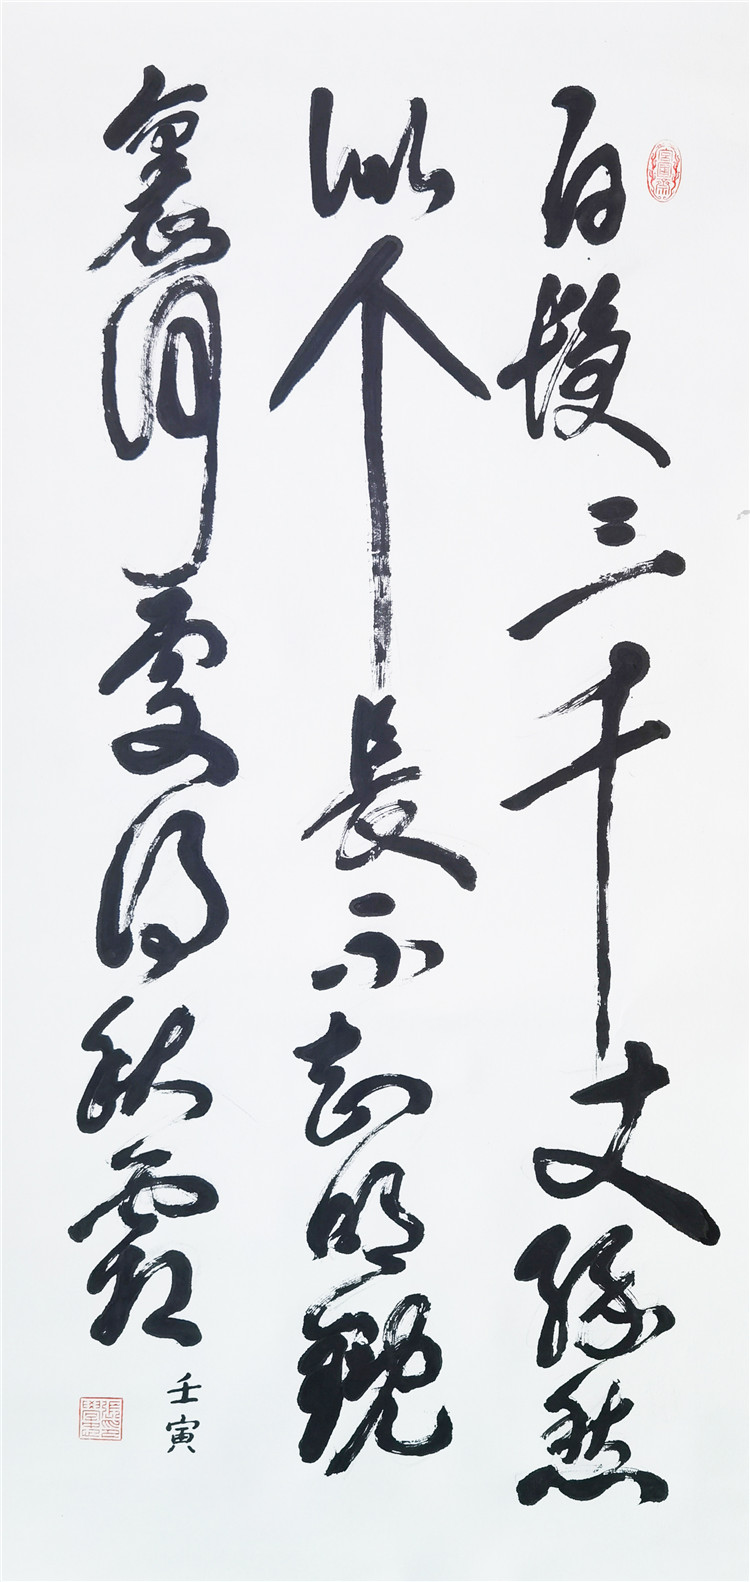 白髮三千丈緣愁
似个長不知明鏡
裏何處得秋霜
壬寅